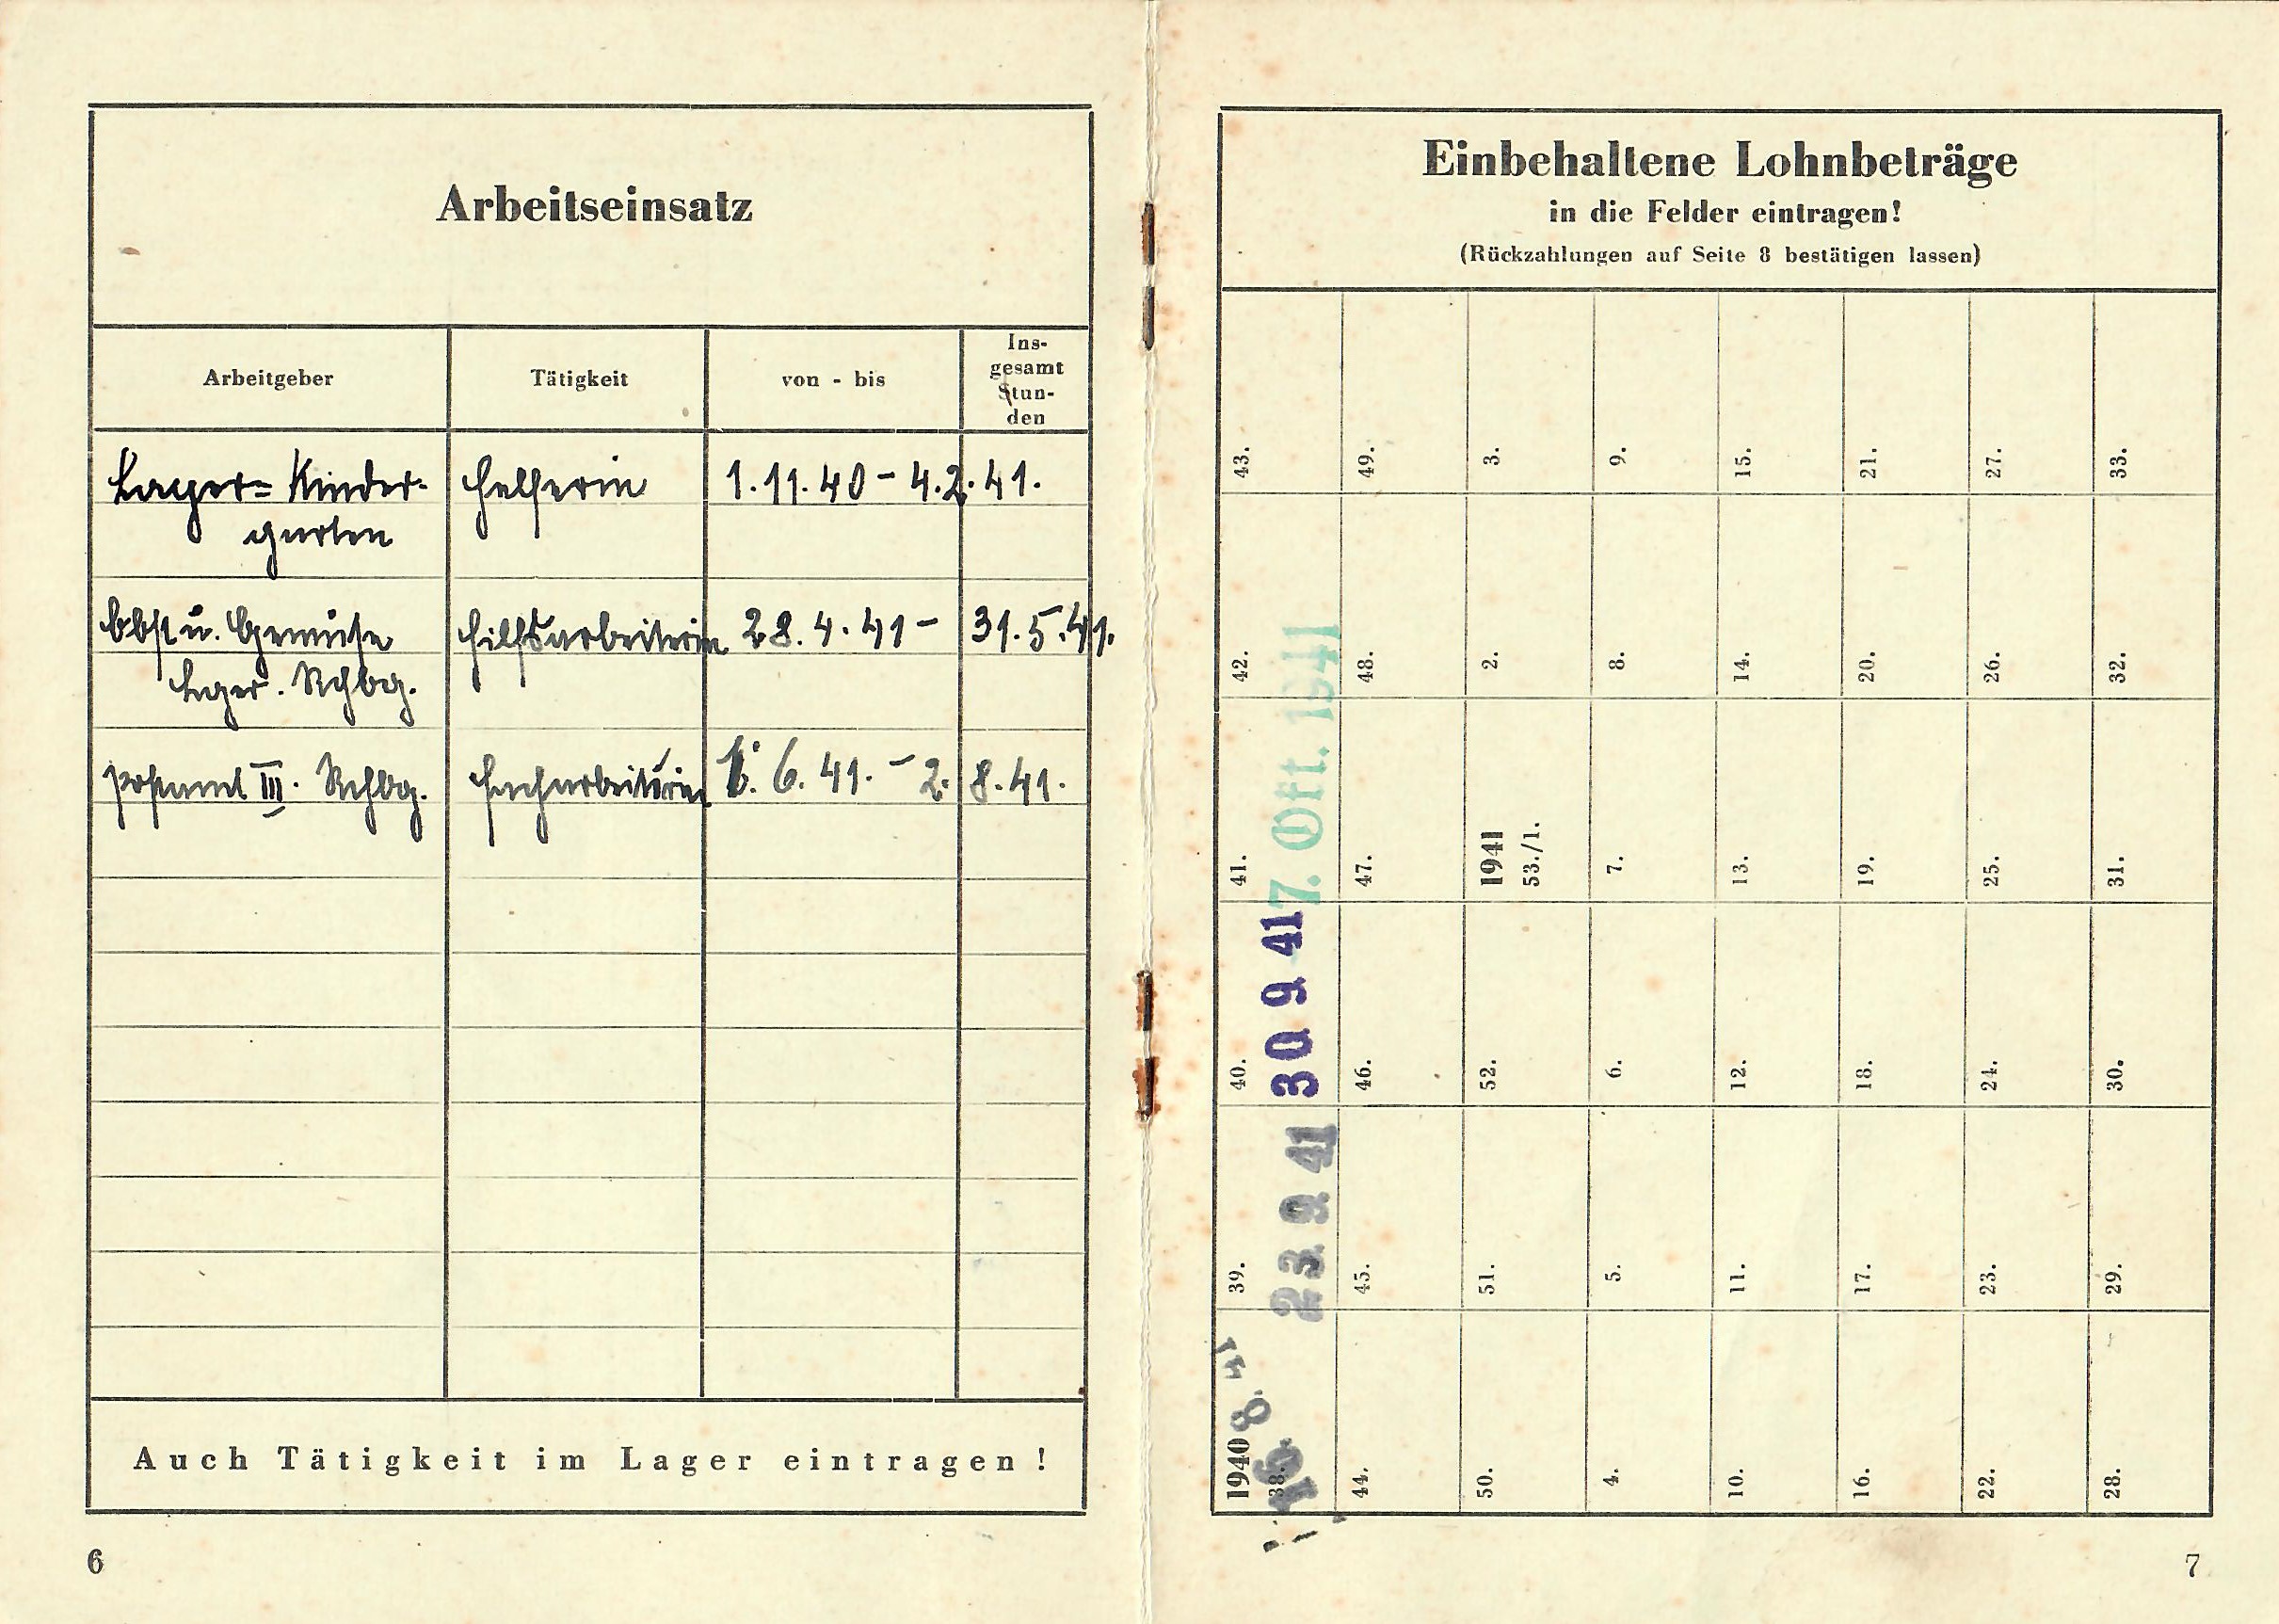 Arbeitseinsatz
Arbeitgeber Tätigkeit von - bis Ins-
gesamt
Stun-
den
Lager= Kinder- Helferin 1.11.40 - 4.2.41.
garten
Obst u. Gemüse Hilfsarbeiterin 28.4.41 - 31.5.41.
Lager. Rchbg.
Postamt III. Rchbg. Facharbeiterin 1. 6. 41. - 2. 8.41.
Auch Tätigkeit im Lager eintragen!
6
Einbehaltene Lohnbeträge
in die Felder eintragen!
(Rückzahlungen auf Seite 8 bestätigen lassen)
43. 49. 3. 9. 15. 21. 27. 33.
42. 48. 2. 8. 14. 20. 26. 32.
41. 47. 1941 53./1. 7. 13. 19. 25. 31.
7. Okt. 1941
40. 46. 52. 6. 12. 18. 24. 30.
30 9 41
39. 45. 51. 5. 11. 17. 23. 29.
23 9 41
1940 38. 44. 50. 4. 10. 16. 22. 28.
7